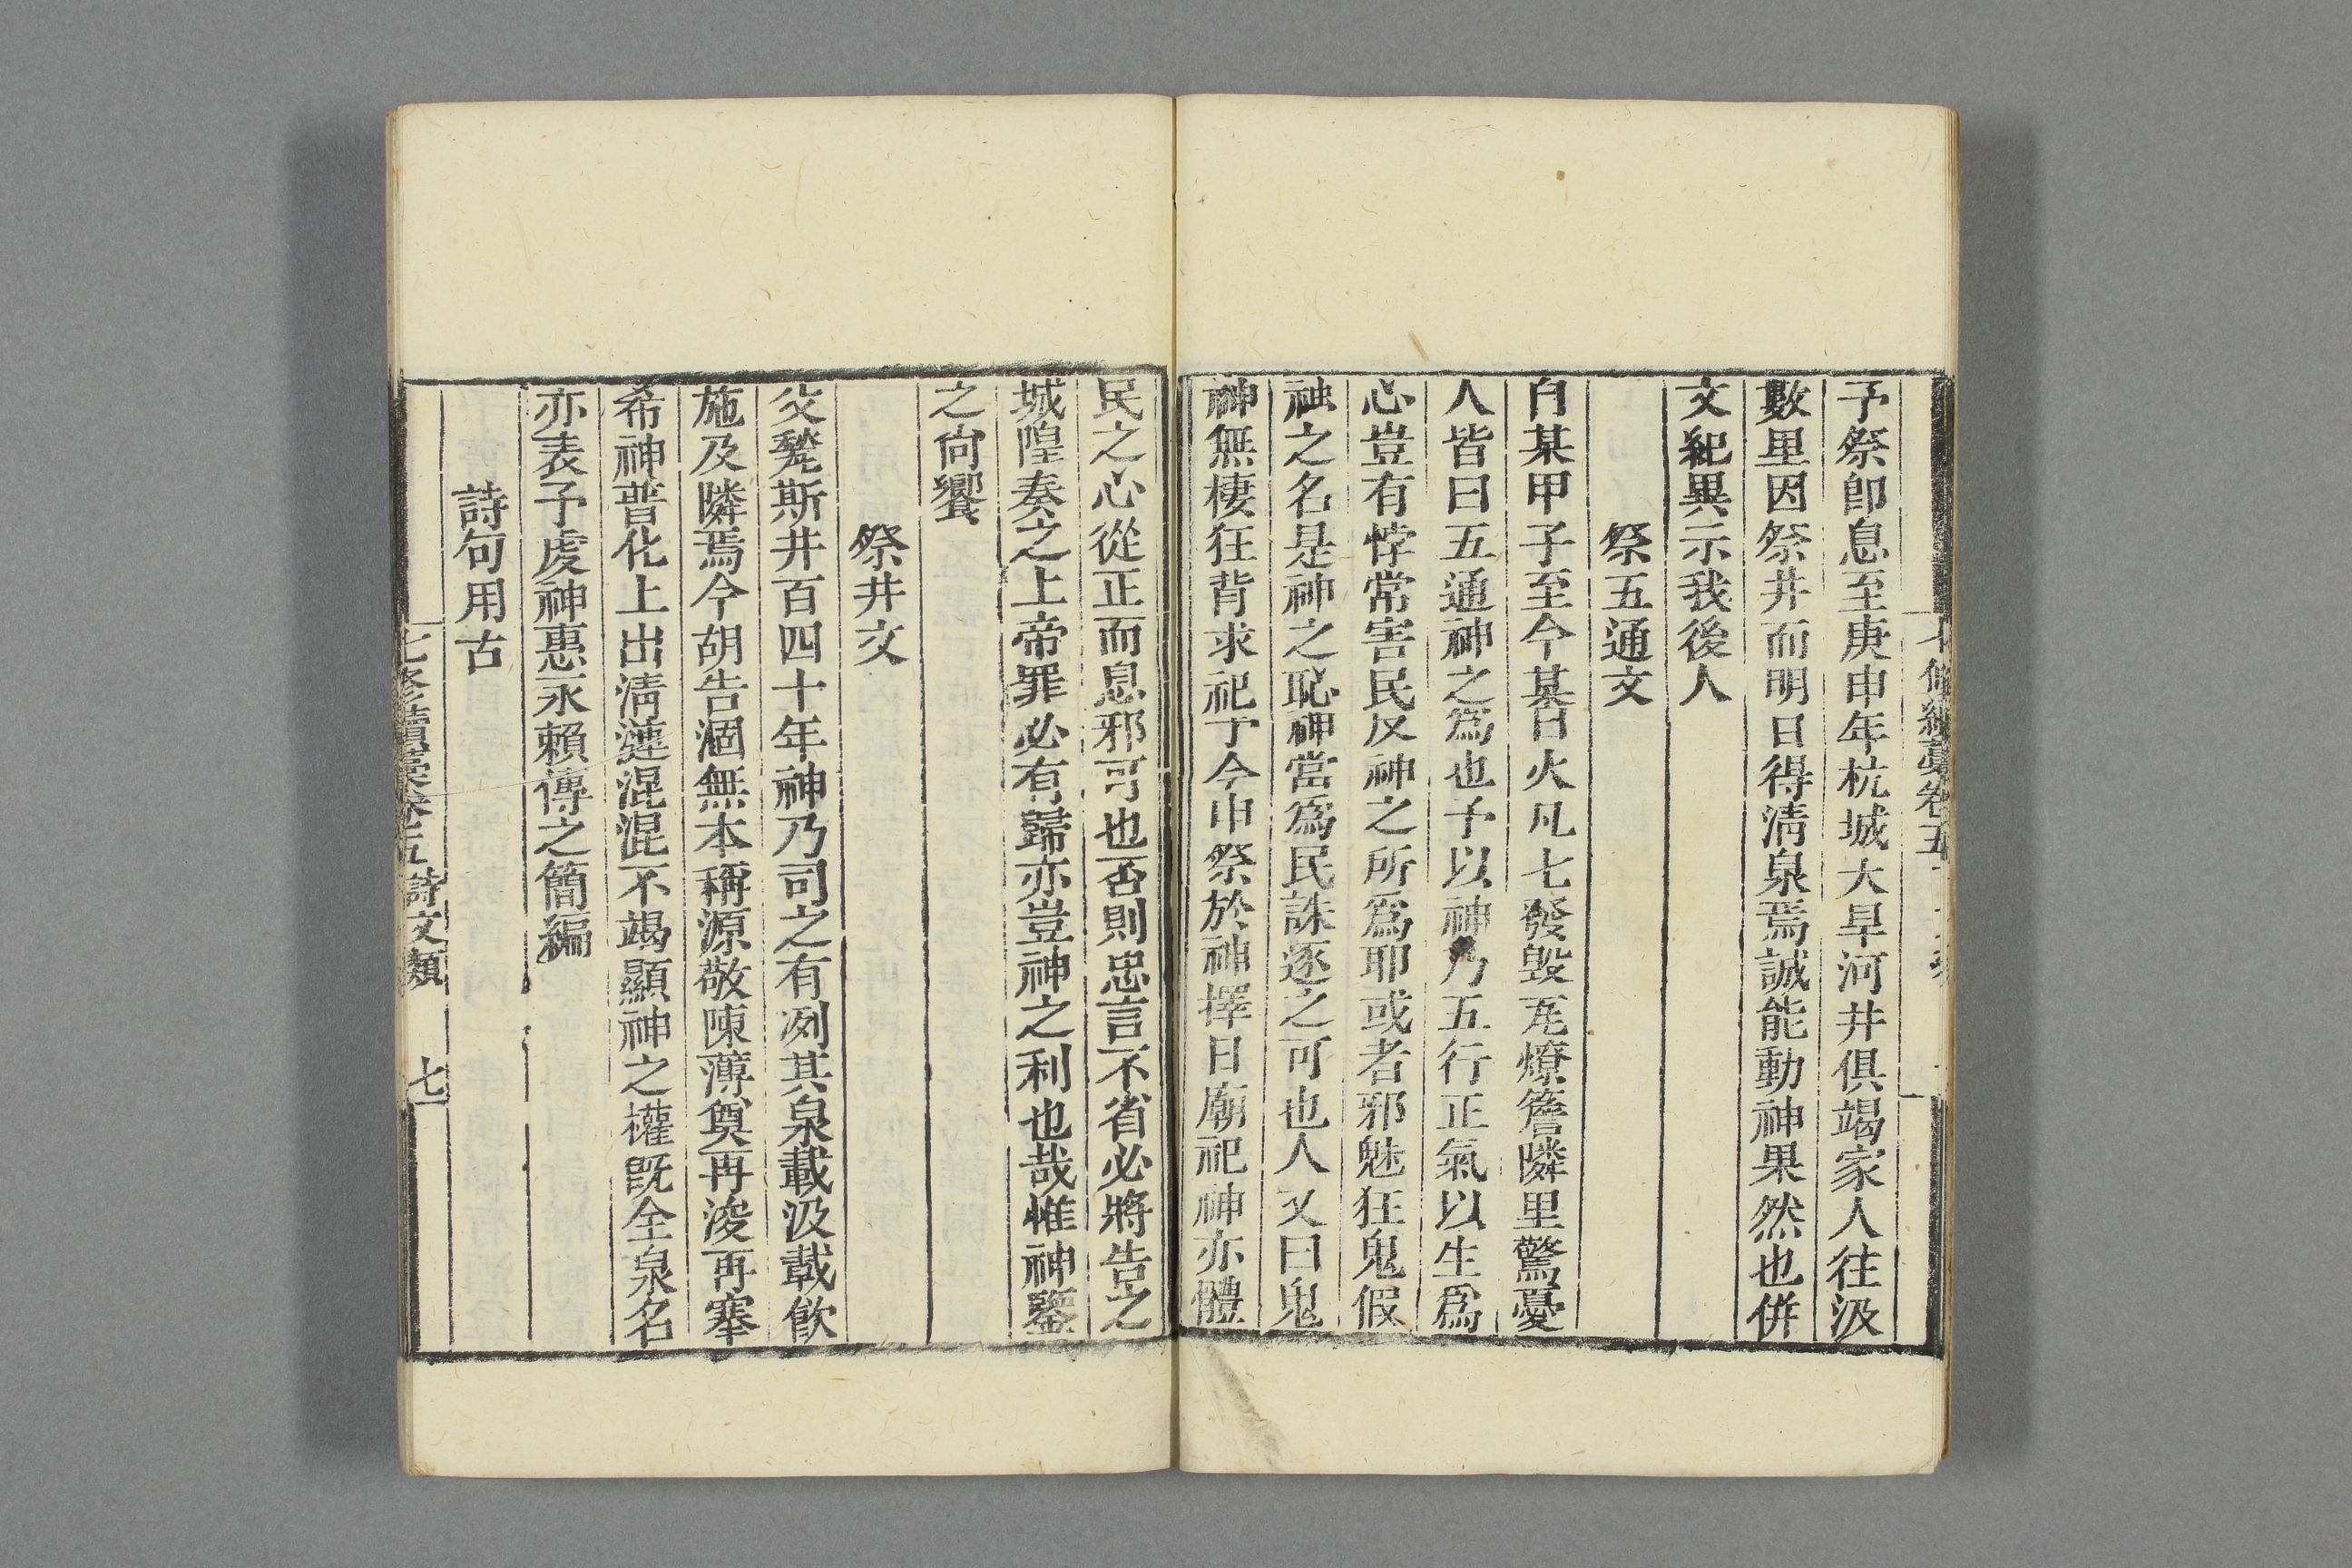 予祭卽息至庚申年杭城大旱河井俱竭家人往汲
數里因祭井而明日得清泉焉誠能動神果然也併
文紀異示我後人
祭五通文
自某甲子至今某日火凡七發毀瓦燎簷隣里驚憂
人皆曰五通神之爲也予以神乃五行正氣以生爲
心豈有悖常害民反神之所爲耶或者邪魅狂鬼假
神之名是神之恥神當爲民誅逐之可也人又曰鬼
神無棲狂背求祀于今申祭於神擇日廟祀神亦體
民之心從正而息邪可也否則忠言不省必將告之
城隍奏之上帝罪必有歸亦豈神之利也哉惟神鑒
之尙饗
祭井文
父甃斯井百四十年神乃司之有冽其泉載汲載飲
施及隣焉今胡告涸無本稱源敬陳薄奠再浚再搴
希神普化上出清漣混混不竭顯神之權既全泉名
亦表予虔神惠永賴傳之簡編
詩句用古
七修續藁卷五 詩文類 七